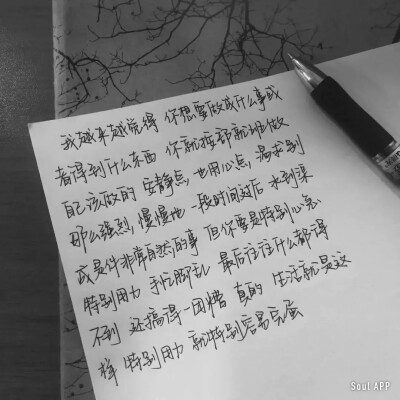 我越来越觉得 你想要做成什么事或
者得到什么东西 你就按部就班做
自己该做的 安静点,也用心点,渴求别
那么强烈,慢慢地 一段时间过后 水到渠
成是件非常自然而的事 但你要是特别心急
特别用力 手忙脚乱 最后往往什么都得
不到 还搞得一团糟 真的 生活就是这
样 特别用力 就特别容易完蛋
Soul APP